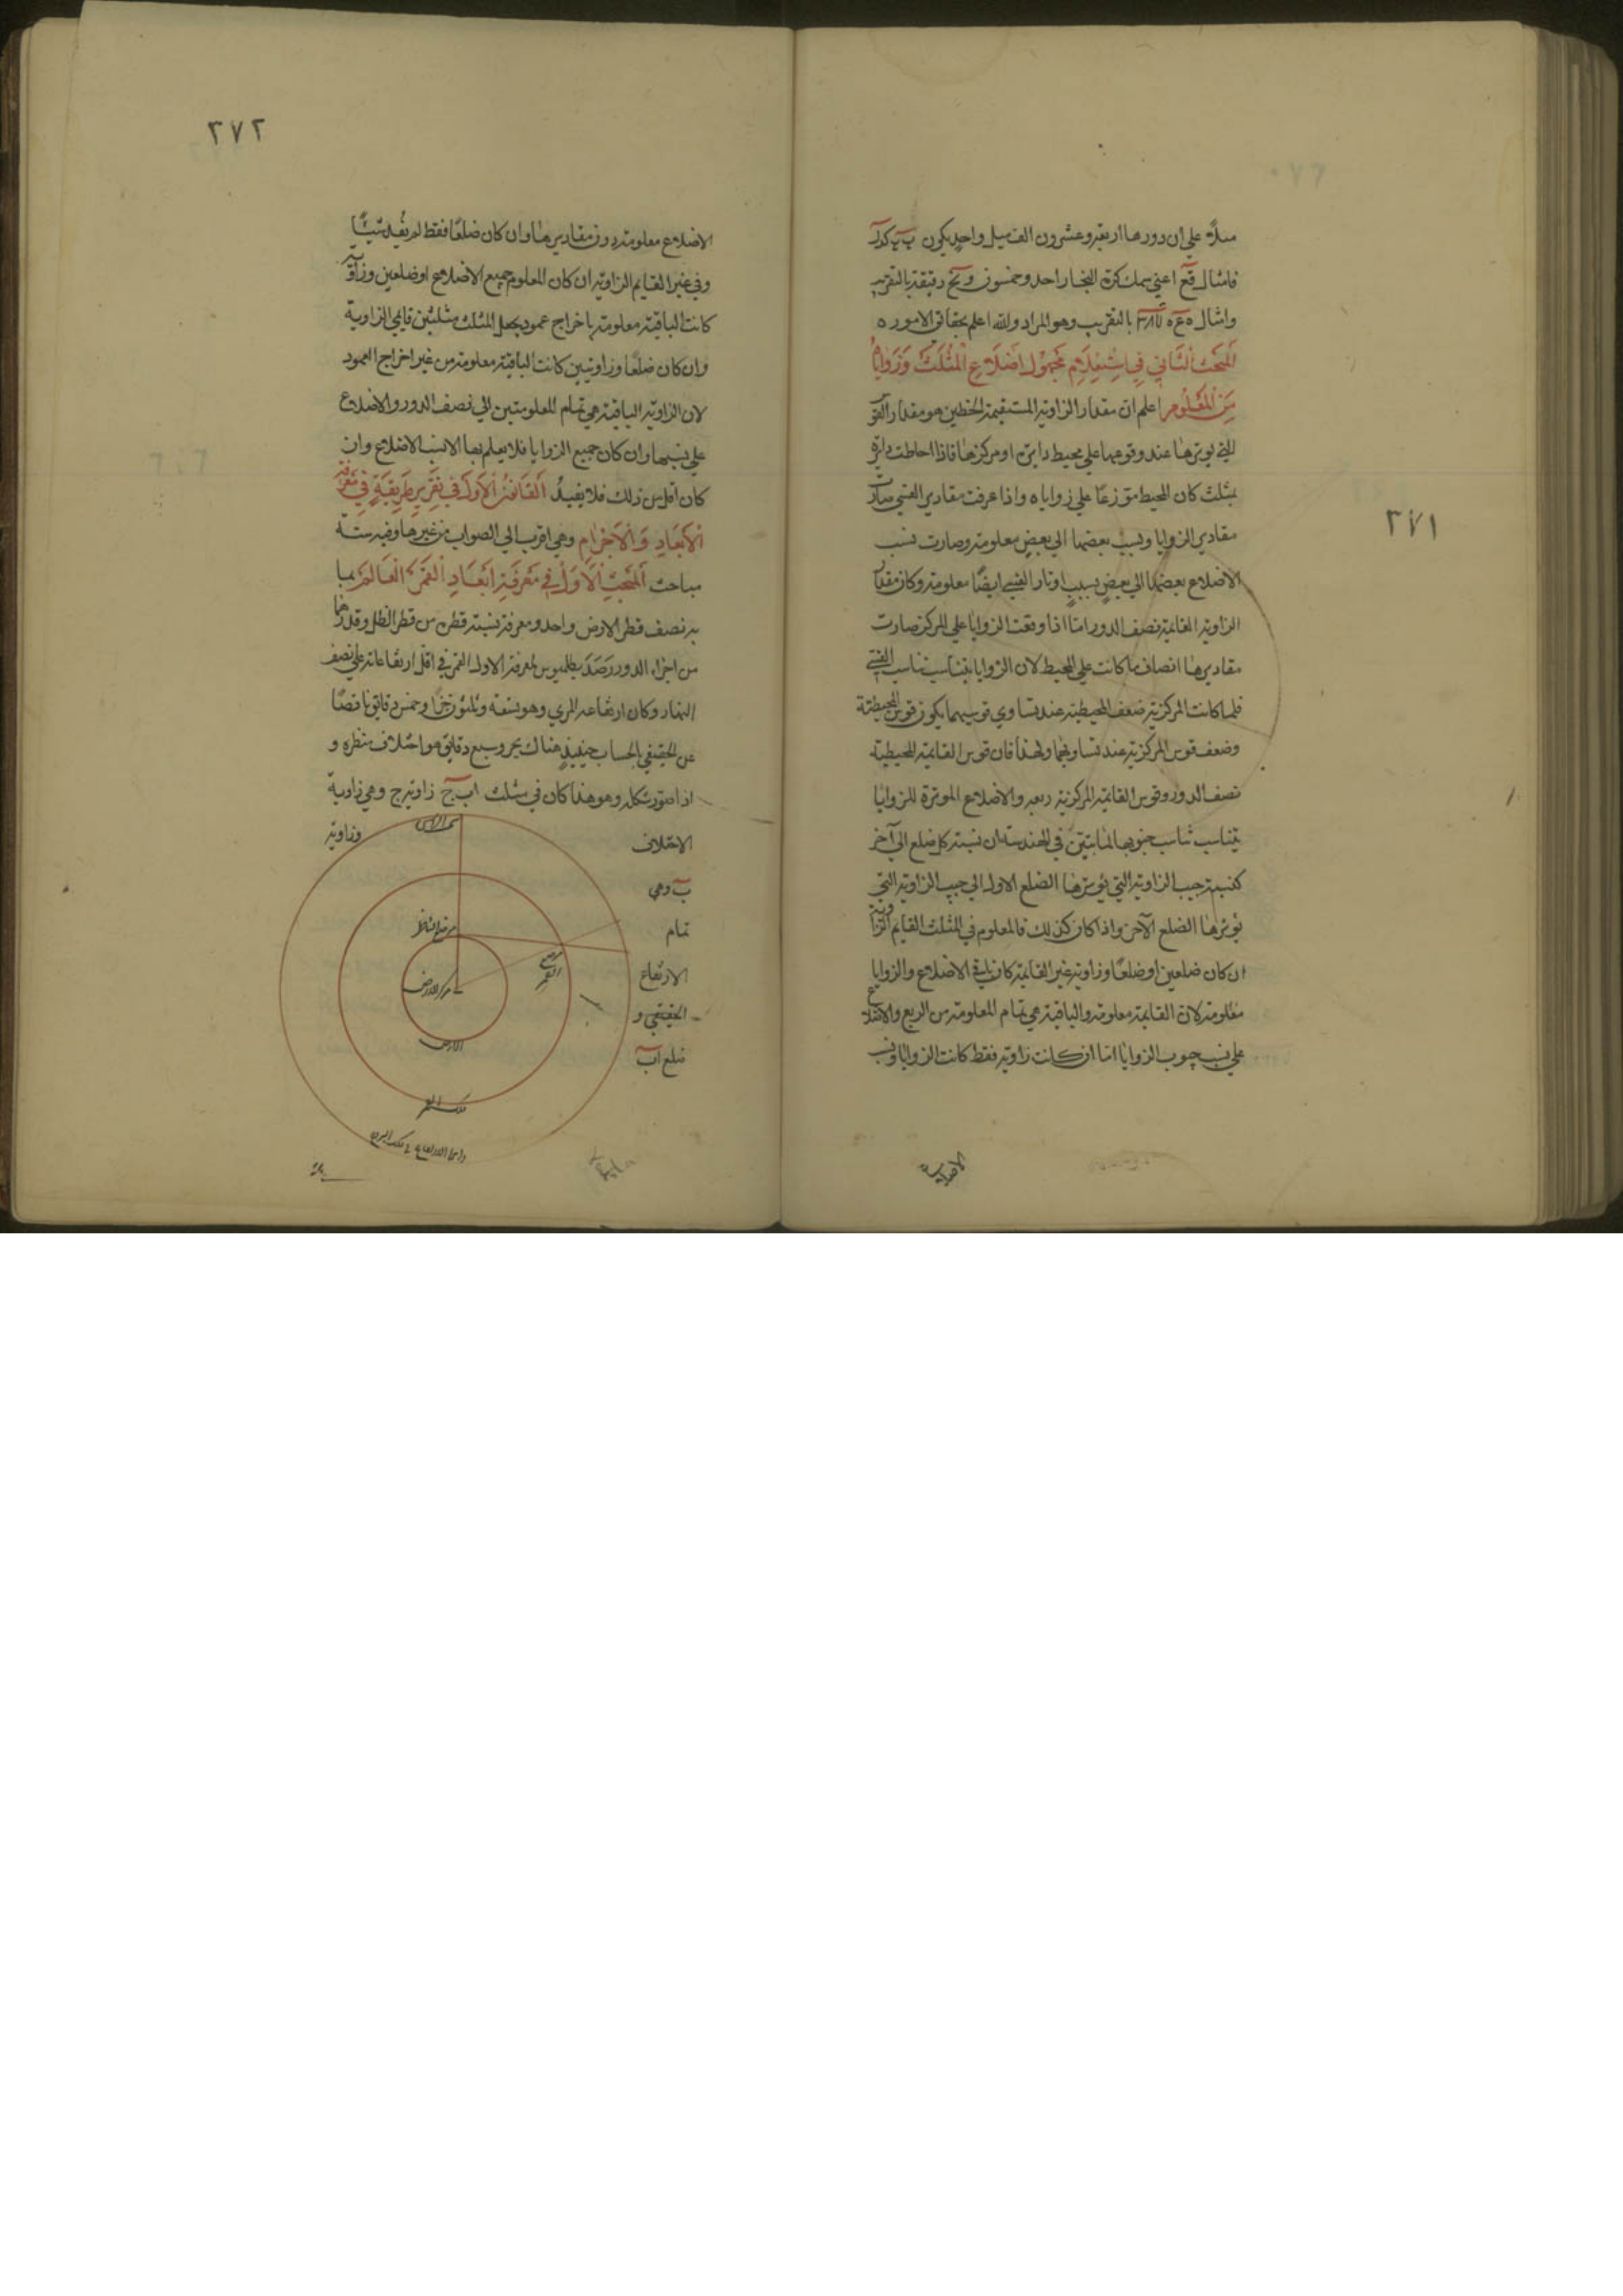 ٢٧١
مثلاً علي ان دورها اربعة وعشرون الف ميل واحد يكون
فامثال قع اعني سمك كرة البخار احد وخمسون و نح دقيقة بالتقريب
وامثال ه ع ه بالتقريب وهو المراد والله اعلم بحقائق الامور ه
المبحث الثاني في استعلام مجهول اضلاع المثلث وزواياه
من المعلوم اعلم ان مقدار الزاوية المستقيمة الخطين هو مقدار القوس
التي توترها عند وقوعها علي محيط دايرة او مركزها فاذا احاطت دايرة
بمثلث كان المحيط موزعًا علي زواياه واذا عرفت مقادير القسي صارت
مقادير الزوايا ونسب بعضها الي بعض معلومة وصارت نسب
الاضلاع بعضها الي بعض بسبب اوتار القسي ايضًا معلومة وكان مقدار
الزاوية القايمة نصف الدور امّا اذا وقعت الزوايا علي المركز صارت
مقاديرها انصاف ما كانت علي المحيط لان الزوايا يتناسب تناسب القسي
فلما كانت المركزية ضعف المحيطية عند تساوي قوسيهما يكون قوس المحيطية
ضعف قوس المركزية عند تساويهما ولهذا فان قوس القايمة المحيطية
نصف الدور وقوس القايمة المركزية ربعه والاضلاع الموترة للزوايا
يتناسب تناسب جيوبها لما تبيّن في الهندسة ان نسبة كل ضلع الي آخر
كنسبة جيب الزاوية التي يوترها الضلع الاول الي جيب الزاوية التي
يوترها الضلع الآخر واذا كان كذلك فالمعلوم في المثلث القايم الزاوية
ان كان ضلعين او ضلعًا وزاوية غير القايمة كان باقي الاضلاع والزوايا
معلومة لان القايمة معلومة والباقية هي تمام المعلومة من الربع والاضلاع
علي نسب جيوب الزوايا امّا ان كانت زاوية فقط كانت الزوايا ونسب
الاضلاع
٢٧٢
الاضلاع معلومة دون مقاديرها وان كان ضلعًا فقط لم يُفِد شيئًا
وفي غير القايم الزاوية ان كان المعلوم جميع الاضلاع او ضلعين وزاوية
كانت الباقية معلومة باخراج عمود يجعل المثلث مثلثين قايمي الزاوية
وان كان ضلعًا وزاويتين كانت الباقية معلومة من غير اخراج العمود
لان الزاوية الباقية هي تمام المعلومتين الي نصف الدور والاضلاع
علي نسبها وان كان جميع الزوايا فلا يعلم بها الا نسب الاضلاع وان
كان اقل من ذلك فلا يفيدُ الفانن الاول في تقرير طريقة في معرفة
الابعاد والاجرام وهي اقرب الي الصواب من غيرها وفيه ستة
مباحث المبحث الاول في معرفة ابعاد القمر العالم بما
به نصف قطر الارض واحد ومعرفة نسبة قطره من قطر الظل وقدرهما
من اجزاء الدور رَصَدَ بطلميوس لمعرفة الاول القمر في اقل ارتفاعاته علي نصف
النهار وكان ارتفاعه المري وهو تسعة وثلثون جزًا وخمس دقايق ناقصًا
عن الحقيقي الحساب حينئذٍ هناك بجزء وسبع دقايق هو اختلاف منظره و
اذا صور شكله وهو هذا كان في مثلث اب ج زاوية ج وهي زاوية
الاختلاف
وزاوية
ب وهي
تمام
الارتفاع
الحقيقي و
ضلع اب
سمت الراس
موضع الناظر
موضع القمر
مركز الارض
الارض
فلك القمر
دايرة الارتفاع في فلك البروج